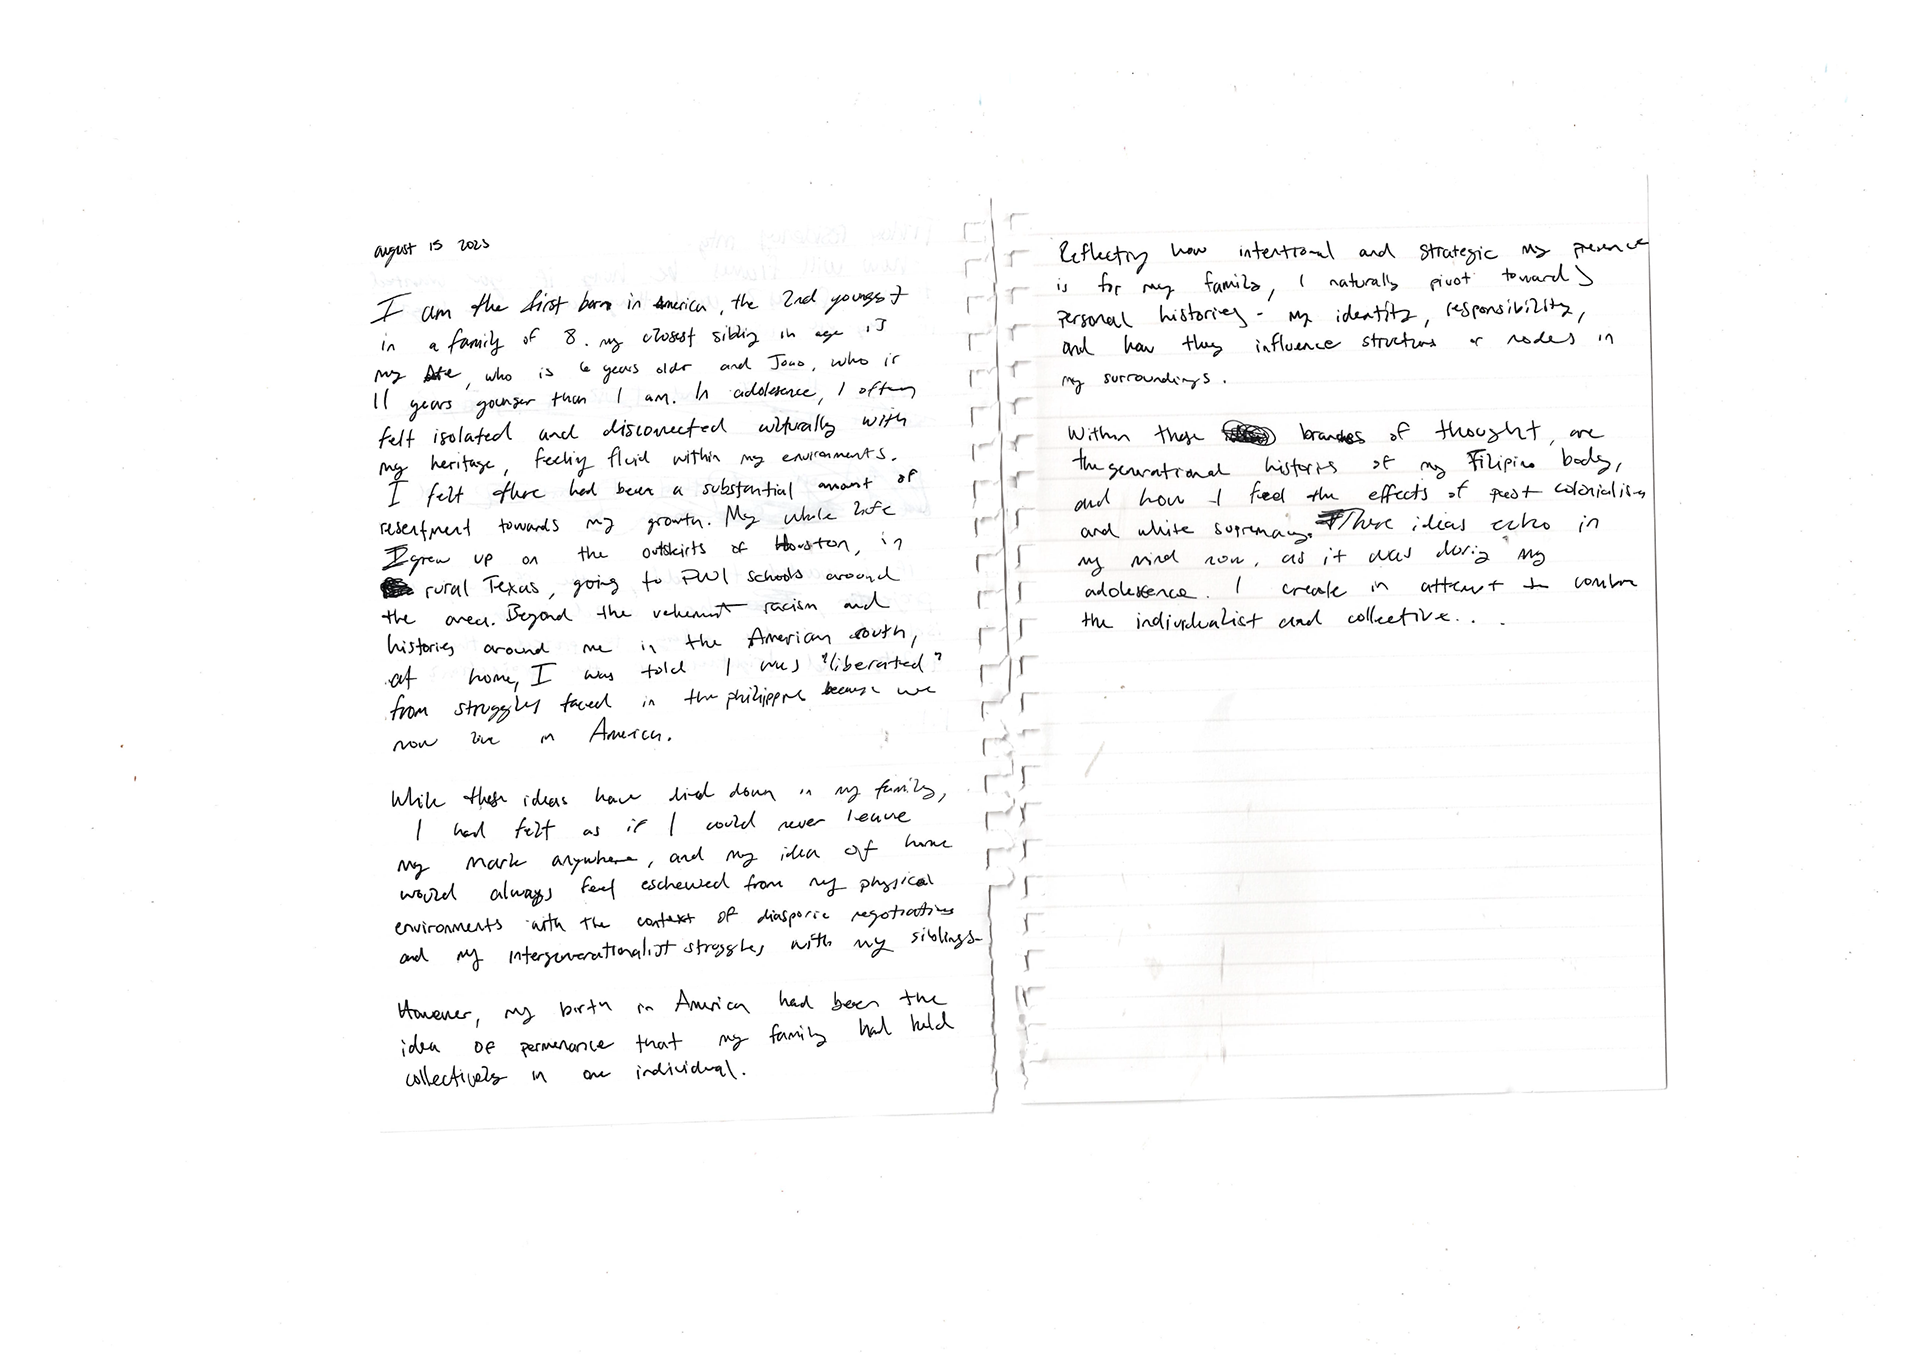 august 15 2023
I am the first born in America, the 2nd youngest
in a family of 8. my closest sibling in age is
my Ate, who is 6 years older and Joao, who is
11 years younger than I am. In adolesence, I often
felt isolated and disconnected culturally with
my heritage, feeling fluid within my environments.
I felt there had been a substantial amount of
resentment towards my growth. My whole life
I grew up on the outskirts of Houston, in
rural Texas, going to PWI schools around
the area. Beyond the vehement racism and
histories around me in the American south,
at home, I was told I was "liberated"
from struggles faced in the philippines because we
now live in America.
While these ideas have died down in my family,
I had felt as if I could never leave
my mark anywhere, and my idea of home
would always feel eschewed from my physical
environments with the context of diasporic negotiations
and my intergenerationalist struggles with my siblings.
However, my birth in America had been the
idea of permenance that my family had held
collectively in one individual.
Reflecting how intentional and strategic my presence
is for my family, I naturally pivot towards
personal histories - my identity, responsibility,
and how they influence structures or nodes in
my surroundings.
Within these branches of thought, are
the generational histories of my Filipino body,
and how I feel the effects of post colonialism
and white supremacy. These ideas echo in
my mind now, as it was during my
adolescence. I create in attempt to
the individualist and collective...